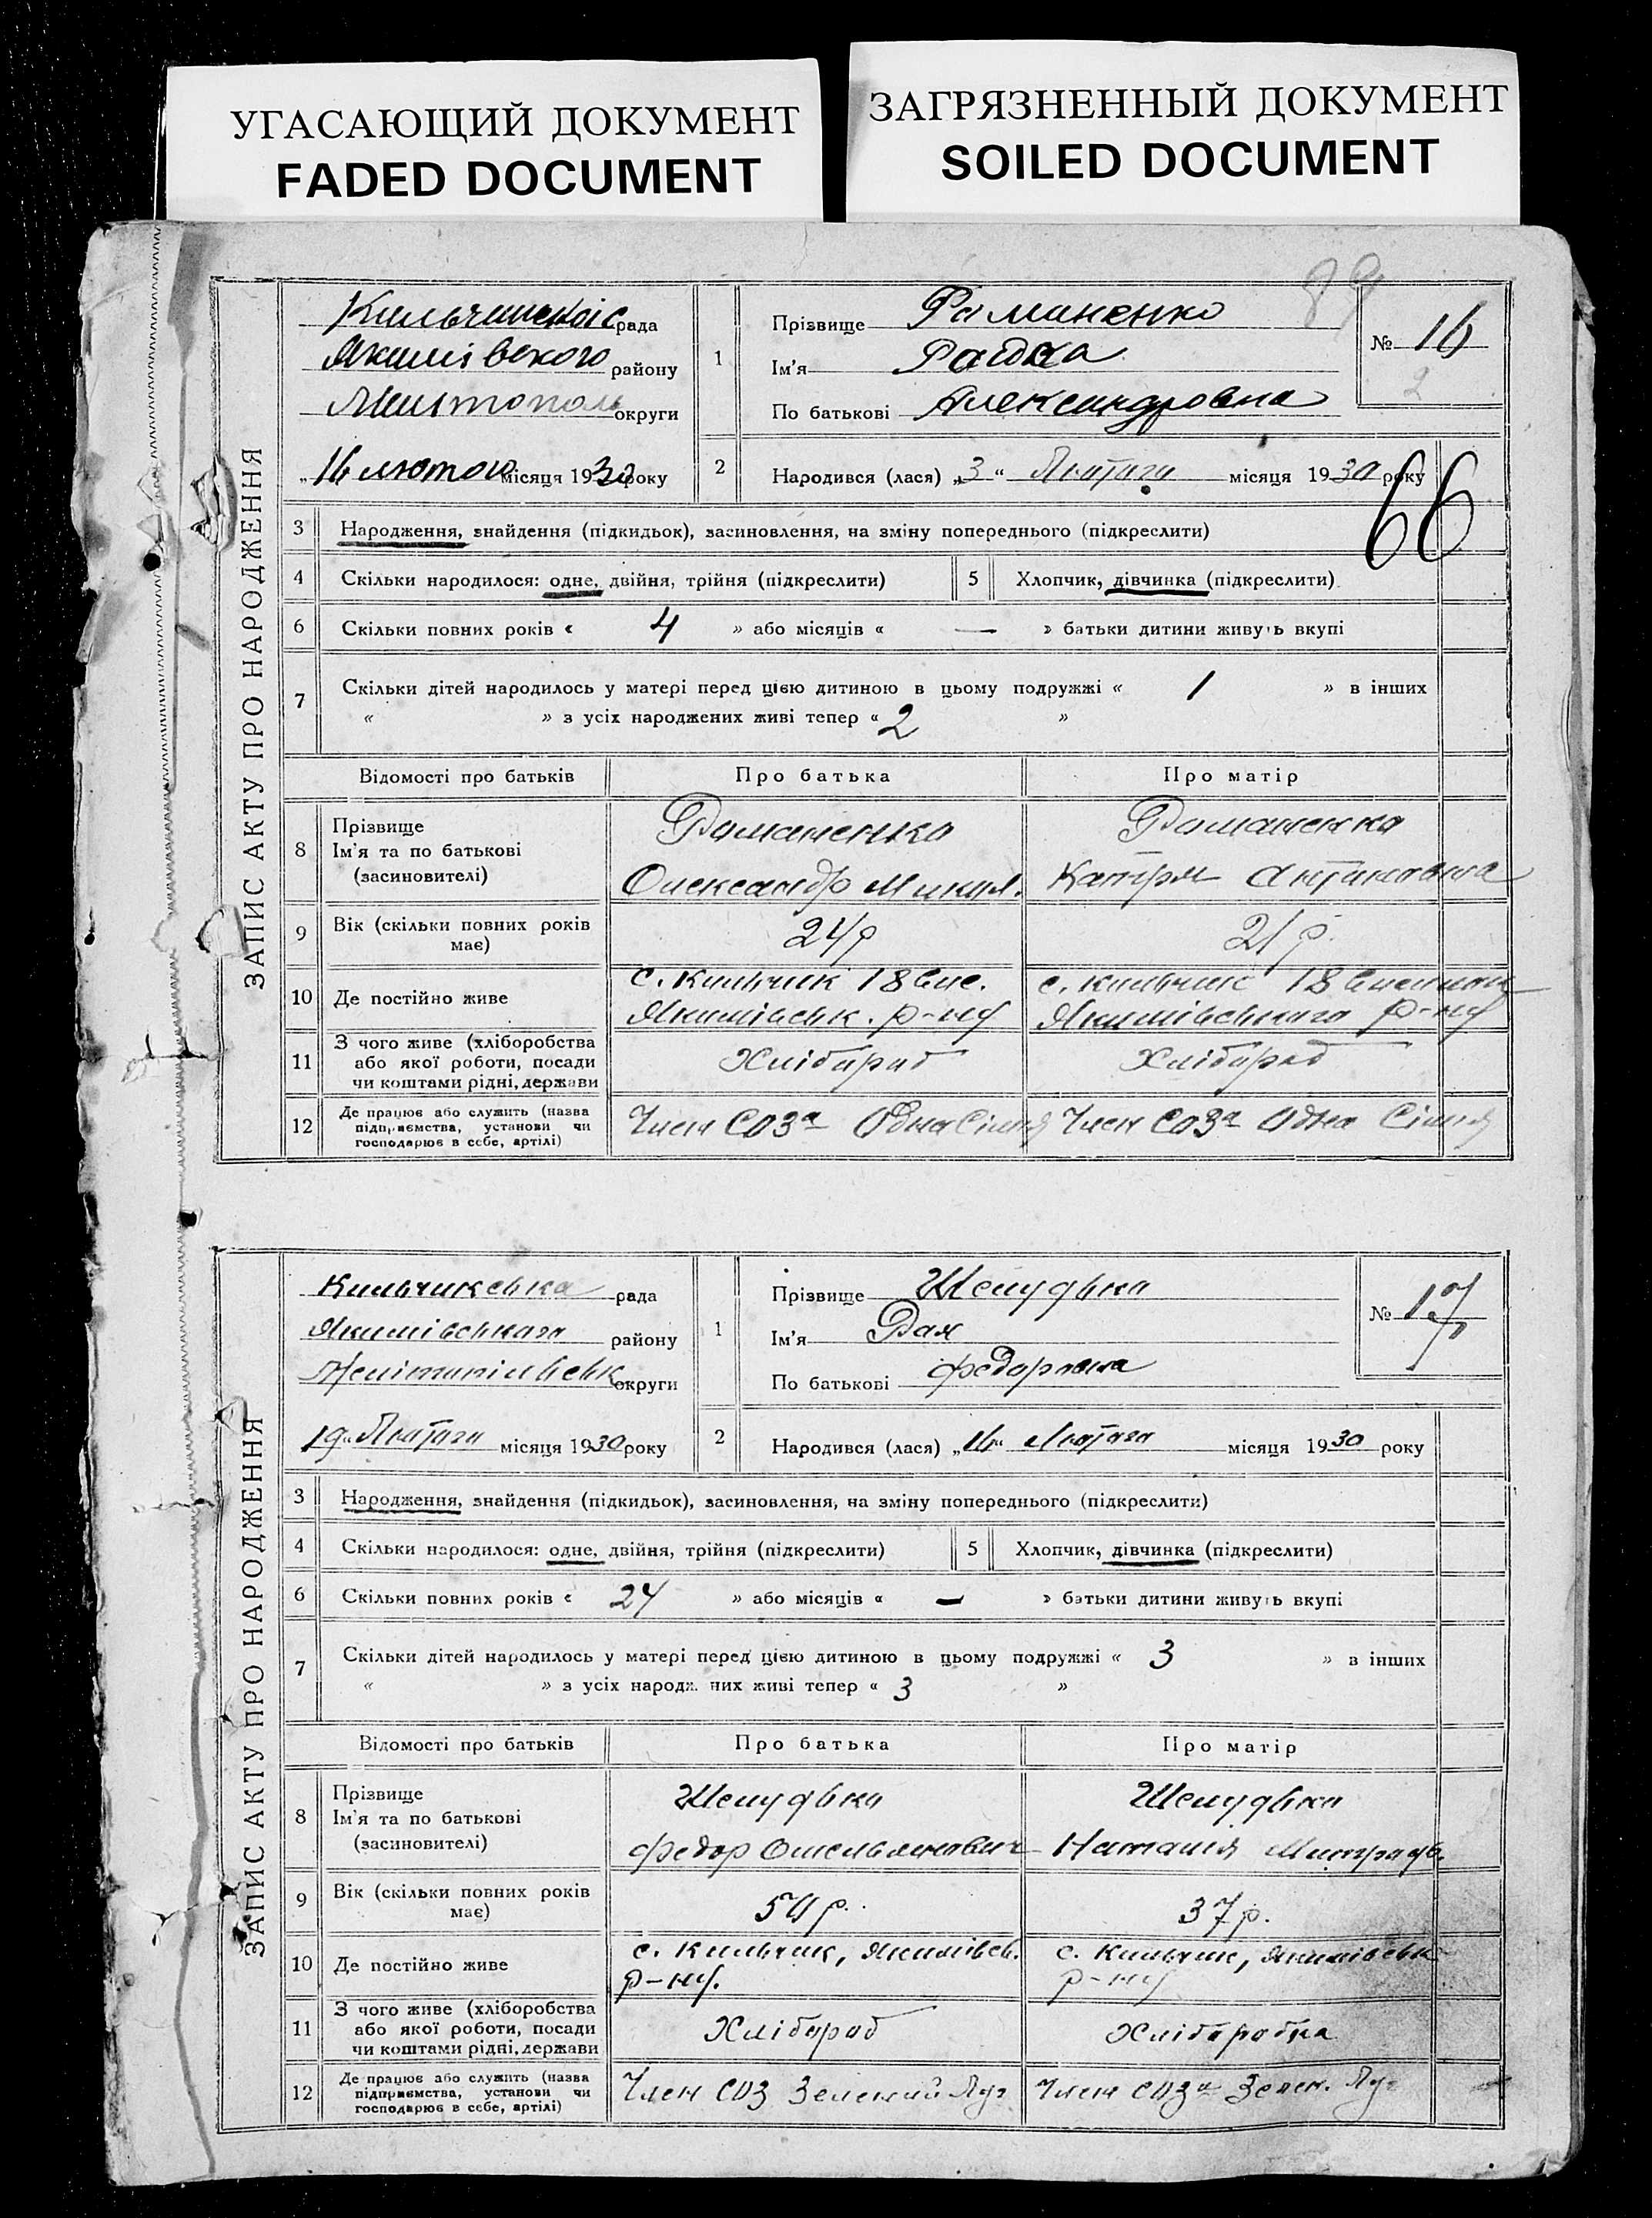 УГАСАЮЩИЙ ДОКУМЕНТ
FADED DOCUMENT
ЗАГРЯЗНЕННЫЙ ДОКУМЕНТ
SOILED DOCUMENT
89
ЗАПИС АКТУ ПРО НАРОДЖЕННЯ
рада
Якимівского району
округи
16 лютого місяця 1930 року
1 Прізвище Романенко
Ім'я
По батькові Александровна
№ 16
2
2 Народився (лася) „3“ Лютаго місяця 1930 року
66
3 Народження, знайдення (підкидьок), засиновлення, на зміну попереднього (підкреслити)
4 Скільки народилося: одне, двійня, трійня (підкреслити) 5 Хлопчик, дівчинка (підкреслити)
6 Скільки повних років « 4 » або місяців « — » батьки дитини живуть вкупі
7 Скільки дітей народилось у матері перед цією дитиною в цьому подружжі « 1 » в інших
« » з усіх народжених живі тепер « 2 »
Відомості про батьків Про батька Про матір
8 Прізвище
Ім'я та по батькові
(засиновителі)
Романенко
Олександр Микол.
Романенко
Катря
9 Вік (скільки повних років
має)
24 р
21 р.
10 Де постійно живе
с. Кильчик 18
Якимівськ. р-ну
с. Кильчик 18
Якимівського р-ну
11 З чого живе (хліборобства
або якої роботи, посади
чи коштами рідні, держави
Хлібороб
Хлібороб
12 Де працює або служить (назва
підприємства, установи чи
господарює в себе, артілі)
Член СОЗа
Член СОЗа
ЗАПИС АКТУ ПРО НАРОДЖЕННЯ
Кильчикська рада
Якимівського району
округи
19 „ Лютаго місяця 1930 року
1 Прізвище Шелудько
Ім'я Рая
По батькові Федоровна
№ 17
2 Народився (лася) „16“ Лютаго місяця 1930 року
3 Народження, знайдення (підкидьок), засиновлення, на зміну попереднього (підкреслити)
4 Скільки народилося: одне, двійня, трійня (підкреслити) 5 Хлопчик, дівчинка (підкреслити)
6 Скільки повних років « 24 » або місяців « — » батьки дитини живуть вкупі
7 Скільки дітей народилось у матері перед цією дитиною в цьому подружжі « 3 » в інших
« » з усіх народжених живі тепер « 3 »
Відомості про батьків Про батька Про матір
8 Прізвище
Ім'я та по батькові
(засиновителі)
Шелудько
Федор Омельянович
Шелудько
Наталія
9 Вік (скільки повних років
має)
54 р.
37 р.
10 Де постійно живе
с. Кильчик, Якимівсь.
р-ну.
с. Кильчик, Якимівськ
р-ну
11 З чого живе (хліборобства
або якої роботи, посади
чи коштами рідні, держави
Хлібороб
Хліборобка
12 Де працює або служить (назва
підприємства, установи чи
господарює в себе, артілі)
Член СОЗ Зелений Луг
Член СОЗа Зелен. Луг